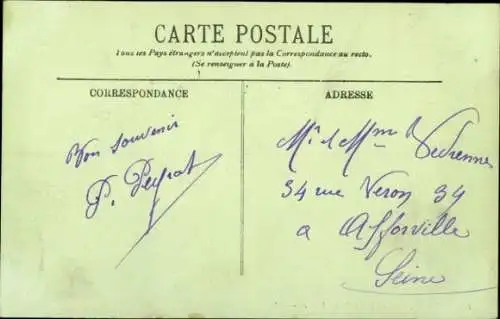 CARTE POSTALE
Tous les Pays étrangers n'acceptent pas la Correspondance au recto.
(Se renseigner à la Poste).
CORRESPONDANCE
Bon souvenir
P. Peyrat
ADRESSE
Mr et Mme
34 rue Véron 34
a Alforville
Seine